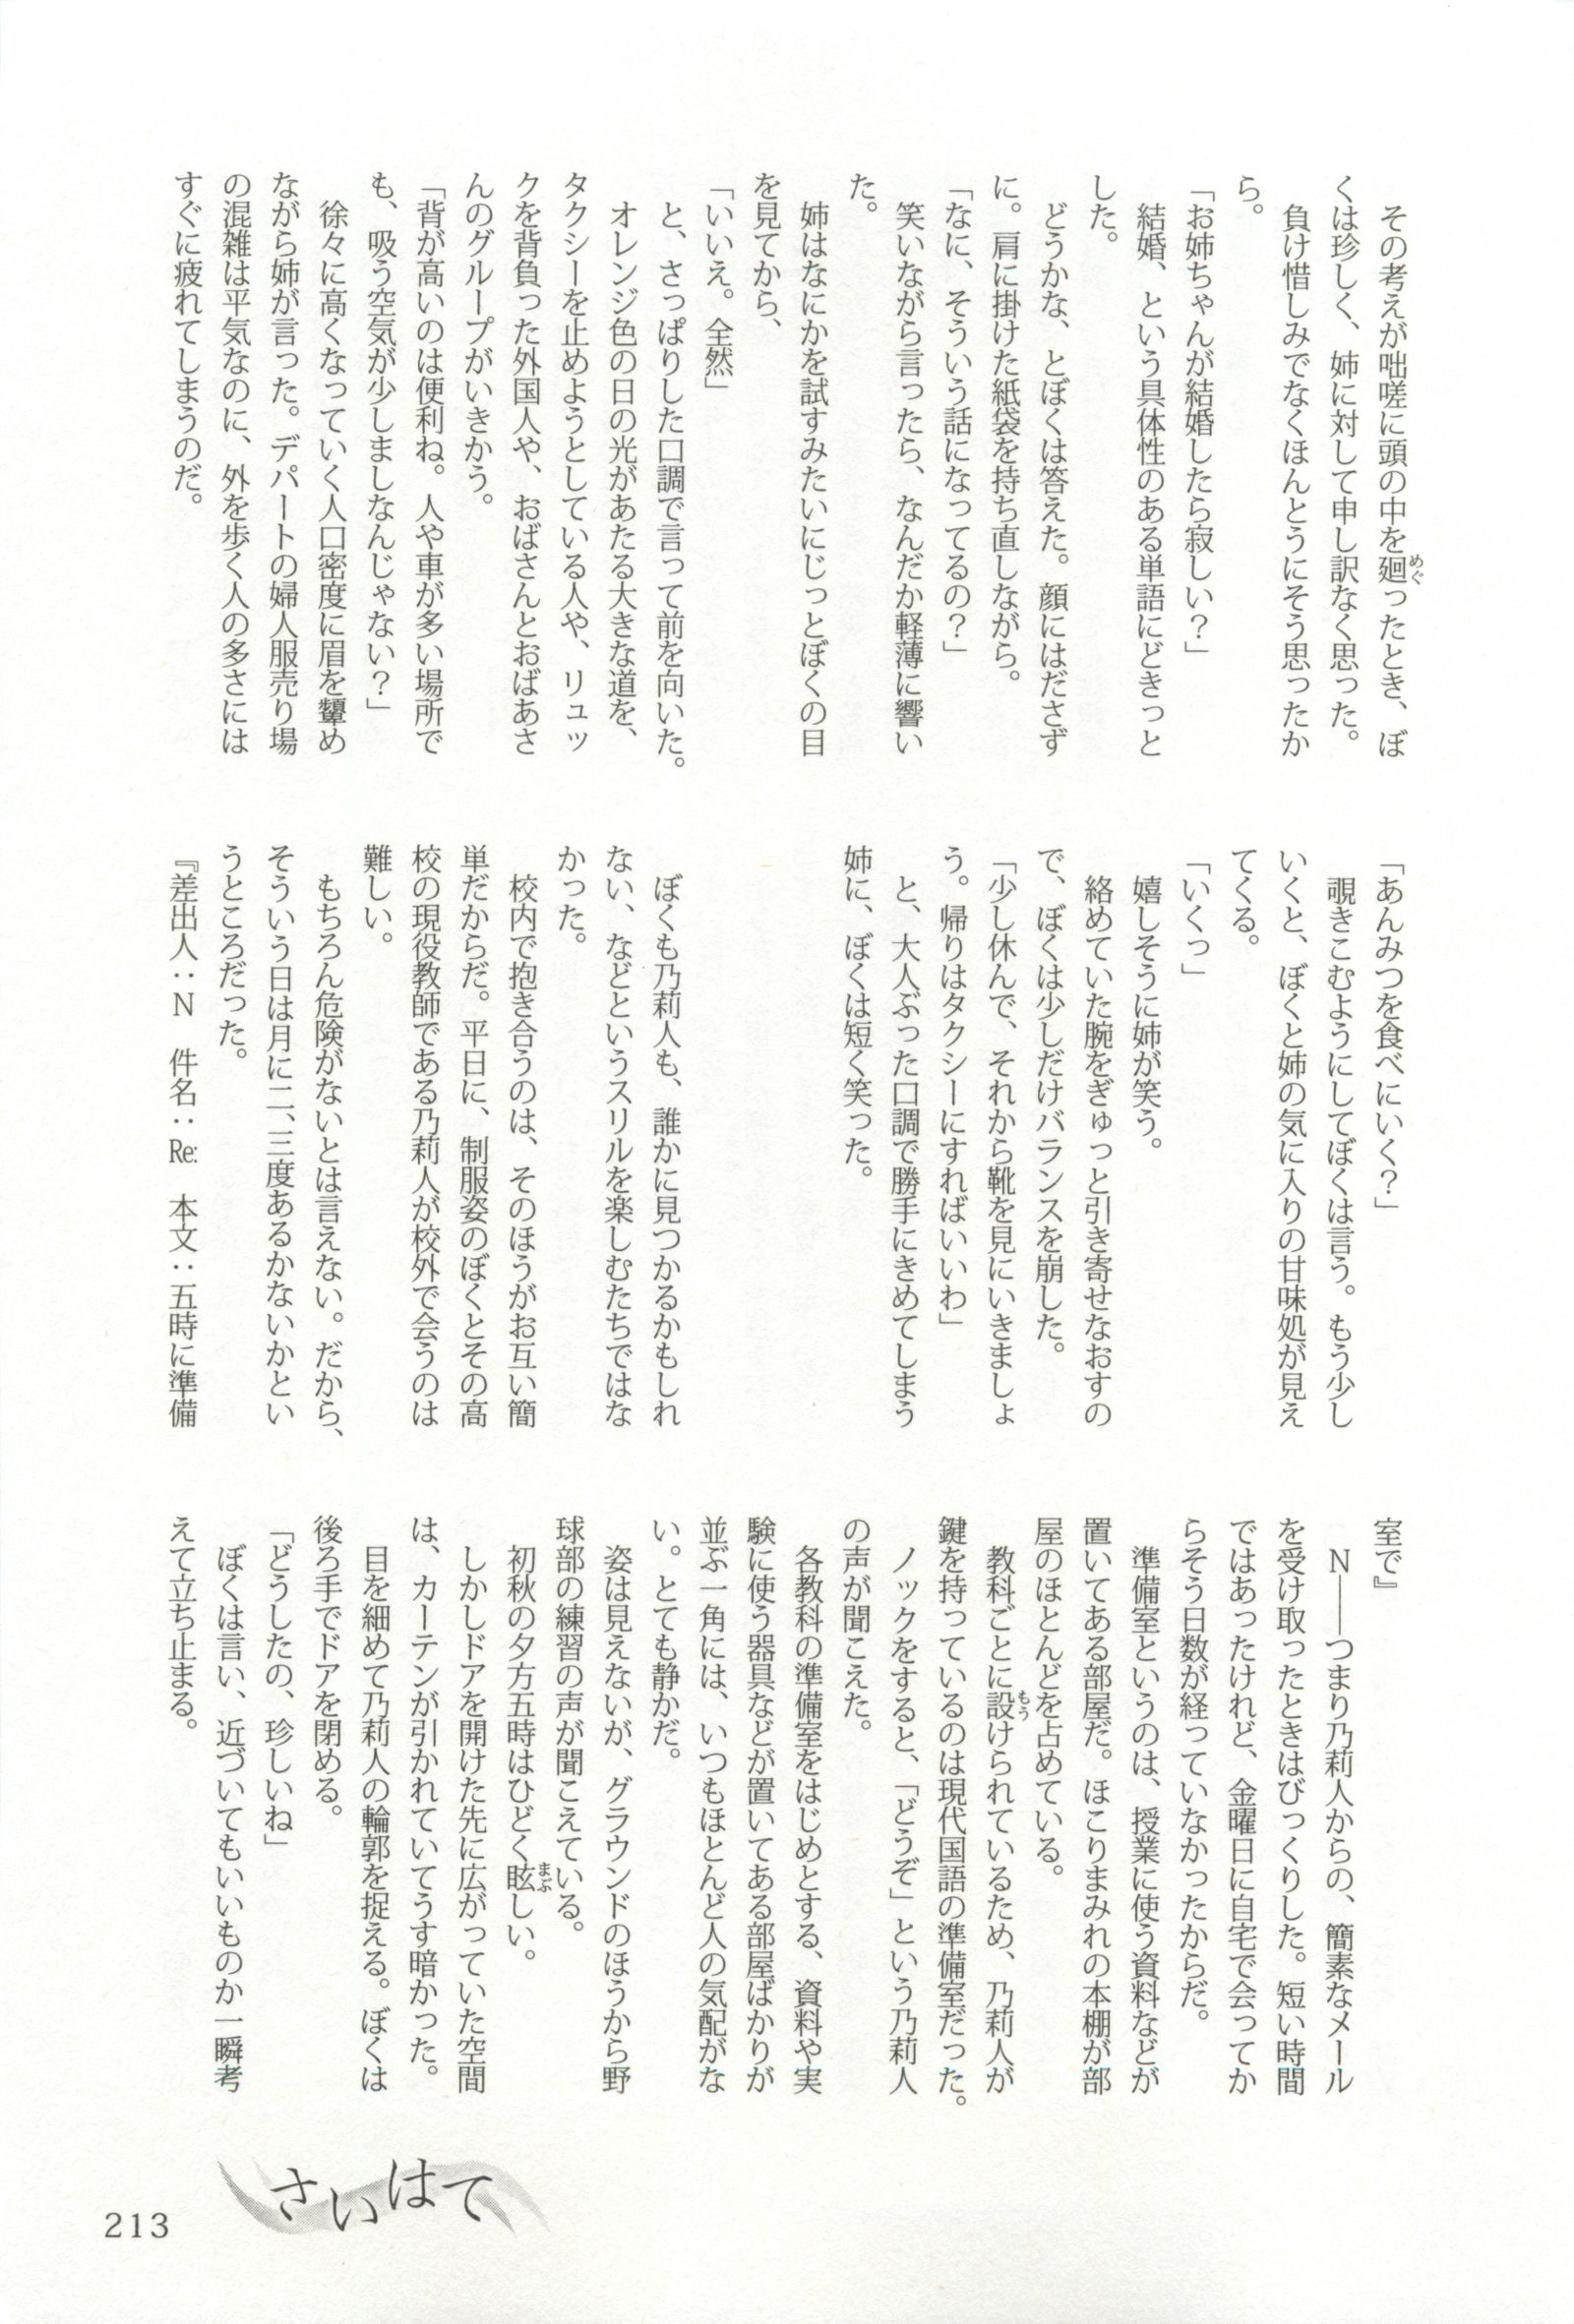 その考えが咄嗟に頭の中を廻ったとき、ぼ
くは珍しく、姉に対して申し訳なく思った。
負け惜しみでなくほんとうにそう思ったか
ら。
「お姉ちゃんが結婚したら寂しい？」
結婚、という具体性のある単語にどきっと
した。
どうかな、とぼくは答えた。顔にはださず
に。肩に掛けた紙袋を持ち直しながら。
「なに、そういう話になってるの？」
笑いながら言ったら、なんだか軽薄に響い
た。
姉はなにかを試すみたいにじっとぼくの目
を見てから、
「いいえ。全然」
と、さっぱりした口調で言って前を向いた。
オレンジ色の日の光があたる大きな道を、
タクシーを止めようとしている人や、リュッ
クを背負った外国人や、おばさんとおばあさ
んのグループがいきかう。
「背が高いのは便利ね。人や車が多い場所で
も、吸う空気が少しましなんじゃない？」
徐々に高くなっていく人口密度に眉を顰め
ながら姉が言った。デパートの婦人服売り場
の混雑は平気なのに、外を歩く人の多さには
すぐに疲れてしまうのだ。
「あんみつを食べにいく？」
覗きこむようにしてぼくは言う。もう少し
いくと、ぼくと姉の気に入りの甘味処が見え
てくる。
「いくっ」
嬉しそうに姉が笑う。
絡めていた腕をぎゅっと引き寄せなおすの
で、ぼくは少しだけバランスを崩した。
「少し休んで、それから靴を見にいきましょ
う。帰りはタクシーにすればいいわ」
と、大人ぶった口調で勝手にきめてしまう
姉に、ぼくは短く笑った。
ぼくも乃莉人も、誰かに見つかるかもしれ
ない、などというスリルを楽しむたちではな
かった。
校内で抱き合うのは、そのほうがお互い簡
単だからだ。平日に、制服姿のぼくとその高
校の現役教師である乃莉人が校外で会うのは
難しい。
もちろん危険がないとは言えない。だから、
そういう日は月に二、三度あるかないかとい
うところだった。
『差出人：N　件名：Re:　本文：五時に準備
室で』
N――つまり乃莉人からの、簡素なメール
を受け取ったときはびっくりした。短い時間
ではあったけれど、金曜日に自宅で会ってか
らそう日数が経っていなかったからだ。
準備室というのは、授業に使う資料などが
置いてある部屋だ。ほこりまみれの本棚が部
屋のほとんどを占めている。
教科ごとに設けられているため、乃莉人が
鍵を持っているのは現代国語の準備室だった。
ノックをすると、「どうぞ」という乃莉人
の声が聞こえた。
各教科の準備室をはじめとする、資料や実
験に使う器具などが置いてある部屋ばかりが
並ぶ一角には、いつもほとんど人の気配がな
い。とても静かだ。
姿は見えないが、グラウンドのほうから野
球部の練習の声が聞こえている。
初秋の夕方五時はひどく眩しい。
しかしドアを開けた先に広がっていた空間
は、カーテンが引かれていてうす暗かった。
目を細めて乃莉人の輪郭を捉える。ぼくは
後ろ手でドアを閉める。
「どうしたの、珍しいね」
ぼくは言い、近づいてもいいものか一瞬考
えて立ち止まる。
さいはて
213